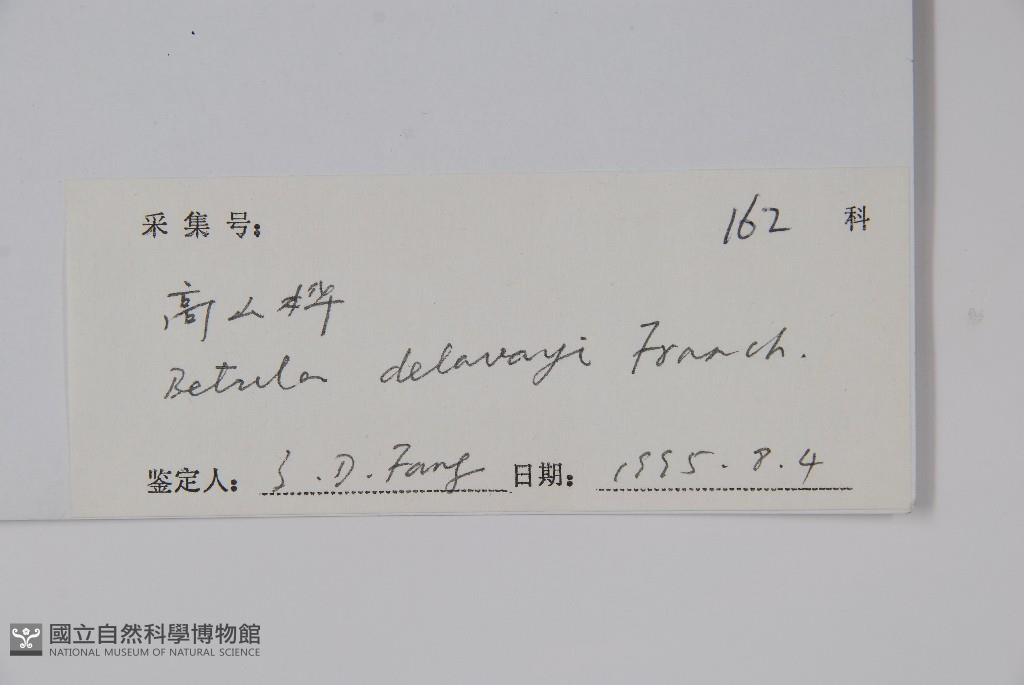 采集号: 162 科
高山桦
Betula delavayi Franch.
鉴定人: Z.D.Fang 日期: 1995.8.4
國立自然科學博物館
NATIONAL MUSEUM OF NATURAL SCIENCE